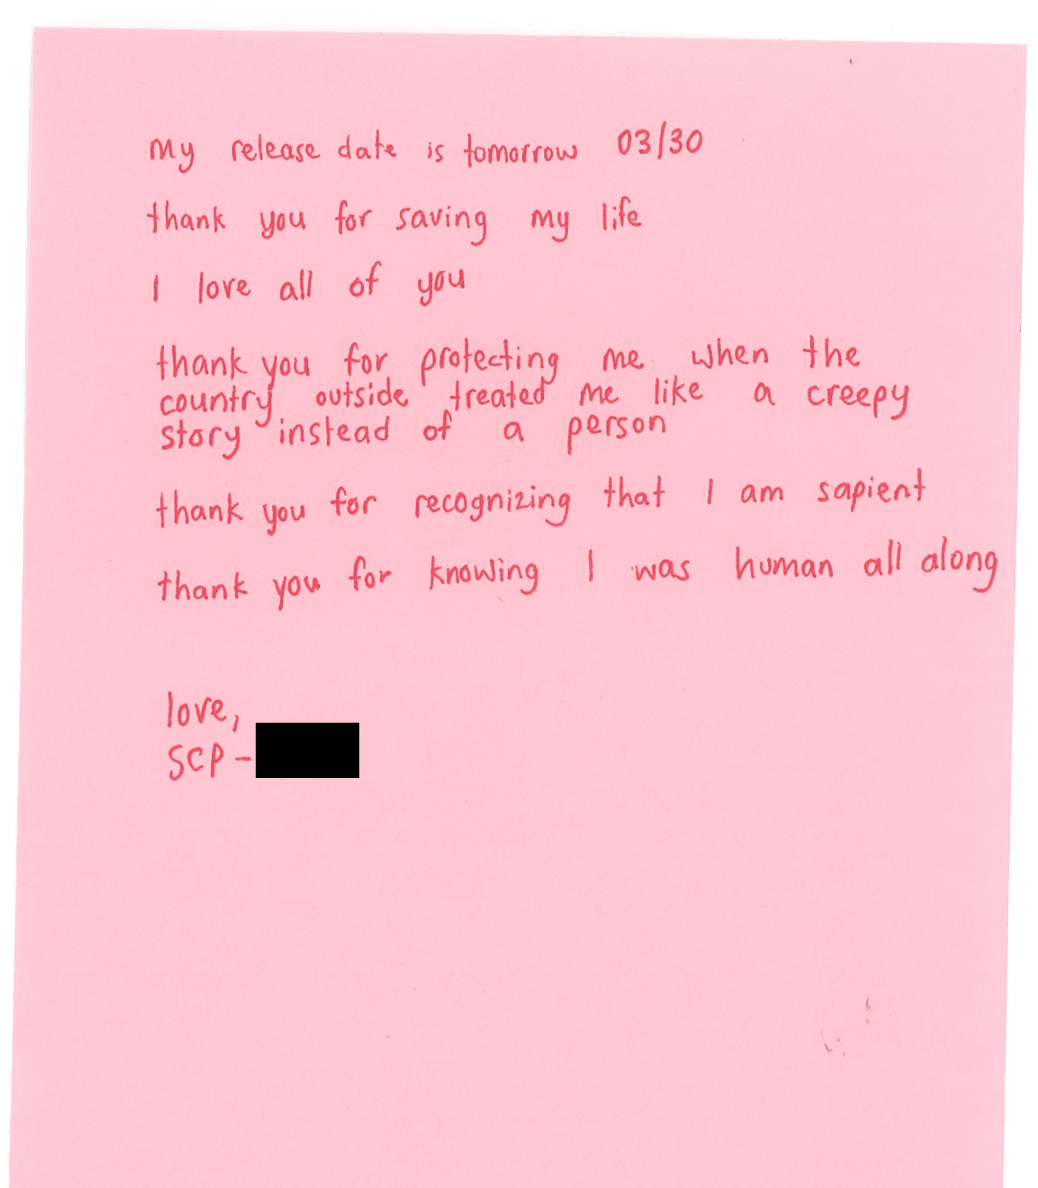 my release date is tomorrow 03/30
thank you for saving my life
I love all of you
thank you for protecting me when the
country outside treated me like a creepy
story instead of a person
thank you for recognizing that I am sapient
thank you for knowing I was human all along
love,
SCP-